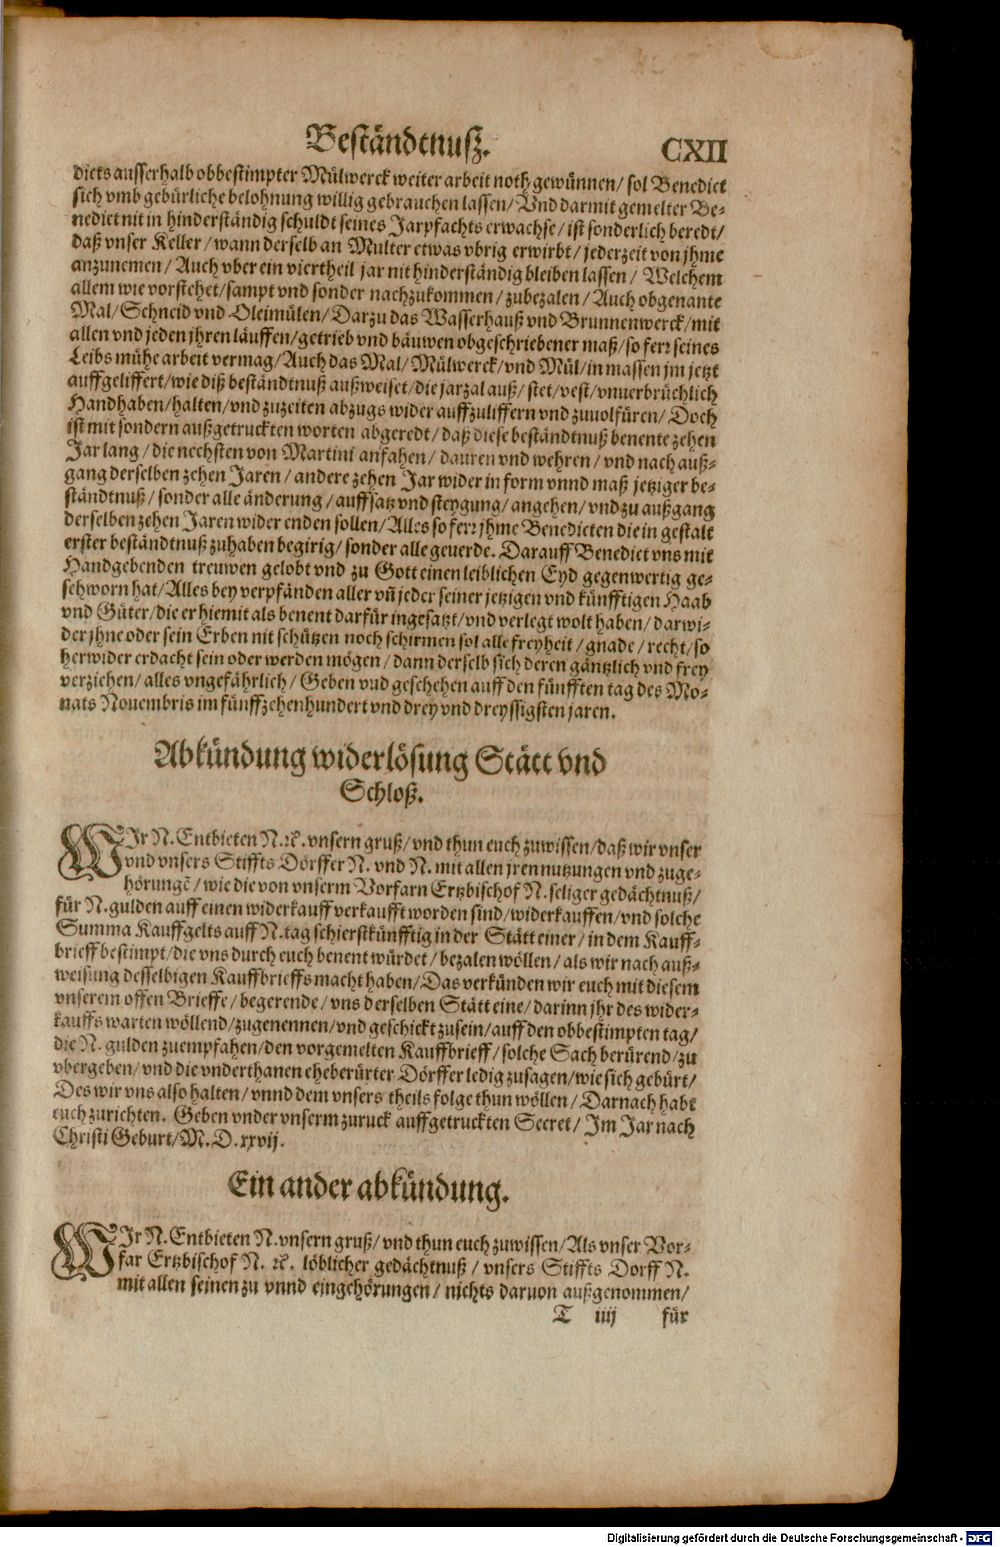 Beständtnuß. CXII
dicts ausserhalb obbestimpter Mülwerck weiter arbeit noth gewünnen/ sol Benedict
sich vmb gebürliche belohnung willig gebrauchen lassen/ Vnd darmit gemelter Be-
nedict nit in hinderständig schuldt seines Jarpfachts erwachse/ ist sonderlich beredt/
daß vnser Keller/ wann derselb an Multer etwas vbrig erwirbt/ jederzeit von jhme
anzunemen/ Auch vber ein viertheil jar nit hinderständig bleiben lassen/ Welchem
allem wie vorstehet/ sampt vnd sonder nachzukommen/ zubezalen/ Auch obgenante
Mal/ Schneid vnd Oleimülen/ Darzu das Wasserhauß vnd Brunnenwerck/ mit
allen vnd jeden jhren läuffen/ getrieb vnd bäuwen obgeschriebener maß/ so ferr seines
Leibs mühe arbeit vermag/ Auch das Mal/ Mülwerck/ vnd Mül/ in massen jm jetzt
auffgeliffert/ wie diß beständtnuß außweiset/ die jarzal auß/ stet/ vest/ vnuerbrüchlich
Handhaben/ halten/ vnd zuzeiten abzugs wider auffzuliffern vnd zuuolfüren/ Doch
ist mit sondern außgetruckten worten abgeredt/ daß diese beständtnuß benente zehen
Jar lang/ die nechsten von Martini anfahen/ dauren vnd wehren/ vnd nach auß-
gang derselben zehen Jaren/ andere zehen Jar wider in form vnnd maß jetziger be-
ständtnuß/ sonder alle änderung/ auffsatz vnd steygung/ angehen/ vnd zu außgang
derselben zehen Jaren wider enden sollen/ Alles so ferr jhme Benedicten die in gestalt
erster beständtnuß zuhaben begirig/ sonder alle geuerde. Darauff Benedict vns mit
Handgebenden treuwen gelobt vnd zu Gott einen leiblichen Eyd gegenwertig ge-
schworn hat/ Alles bey verpfänden aller vñ jeder seiner jetzigen vnd künfftigen Haab
vnd Güter/ die er hiemit als benent darfür ingesatzt/ vnd verlegt wolt haben/ darwi-
der jhne oder sein Erben nit schützen noch schirmen sol alle freyheit/ gnade/ recht/ so
herwider erdacht sein oder werden mögen/ dann derselb sich deren gäntzlich vnd frey
verziehen/ alles vngefährlich/ Geben vnd geschehen auff den fünfften tag des Mo-
nats Nouembris im fünffzehenhundert vnd drey vnd dreyssigsten jaren.
Abkündung widerlösung Stätt vnd
Schloß.
WIr N. Entbieten N. ꝛc. vnsern gruß/ vnd thun euch zuwissen/ daß wir vnser
vnd vnsers Stiffts Dörffer N. vnd N. mit allen jren nutzungen vnd zuge-
hörungẽ/ wie die von vnserm Vorfarn Ertzbischof N. seliger gedächtnuß/
für N. gulden auff einen widerkauff verkaufft worden sind/ widerkauffen/ vnd solche
Summa Kauffgelts auff N. tag schierstkünfftig in der Stätt einer/ in dem Kauff-
brieff bestimpt/ die vns durch euch benent würdet/ bezalen wöllen/ als wir nach auß-
weisung desselbigen Kauffbrieffs macht haben/ Das verkünden wir euch mit diesem
vnserem offen Brieffe/ begerende/ vns derselben Stätt eine/ darinn jhr des wider-
kauffs warten wöllend/ zugenennen/ vnd geschickt zusein/ auff den obbestimpten tag/
die N. gulden zuempfahen/ den vorgemelten Kauffbrieff/ solche Sach berürend/ zu
vbergeben/ vnd die vnderthanen eheberürter Dörffer ledig zusagen/ wie sich gebürt/
Des wir vns also halten/ vnnd dem vnsers theils folge thun wöllen/ Darnach habt
euch zurichten. Geben vnder vnserm zuruck auffgetruckten Secret/ Im Jar nach
Christi Geburt/ M. D. xxvij.
Ein ander abkündung.
WIr N. Entbieten N. vnsern gruß/ vnd thun euch zuwissen/ Als vnser Vor-
far Ertzbischof N. ꝛc. löblicher gedächtnuß/ vnsers Stiffts Dorff N.
mit allen seinen zu vnnd eingehörungen/ nichts daruon außgenommen/
T iiij für
Digitalisierung gefördert durch die Deutsche Forschungsgemeinschaft - DFG